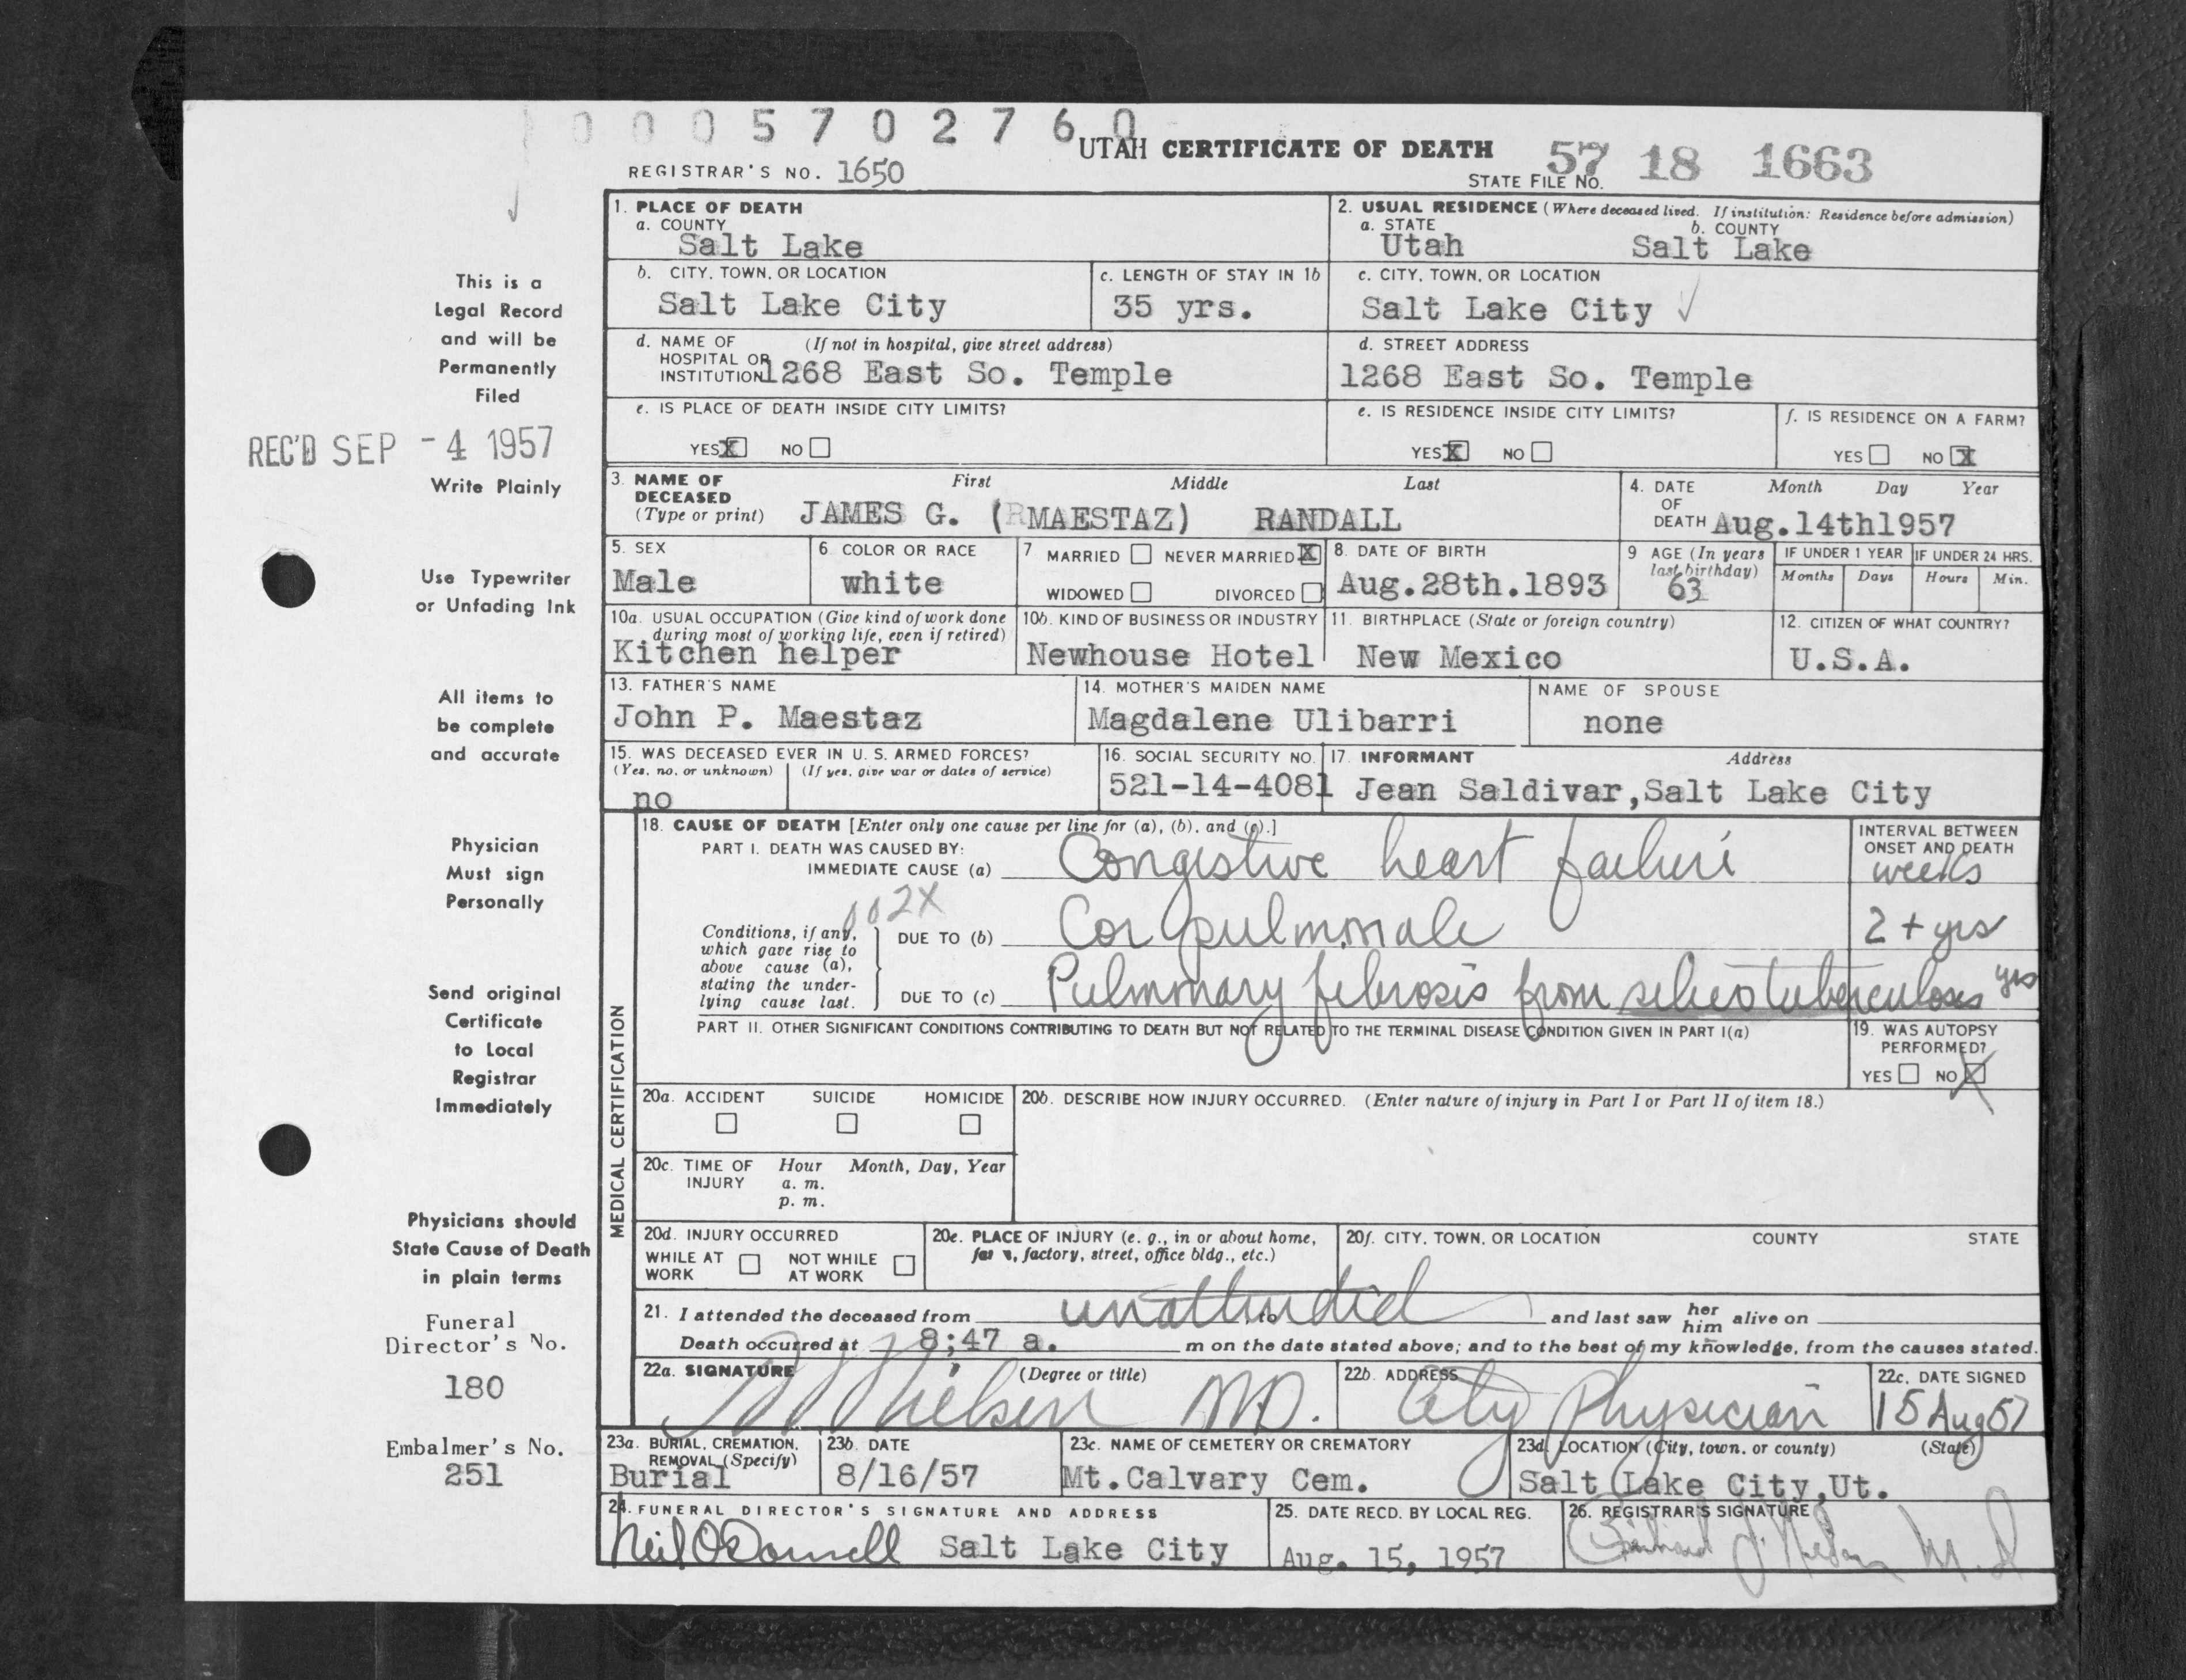 0 0 0 5 7 0 2 7 6 0
UTAH CERTIFICATE OF DEATH
REGISTRAR'S NO. 1650
STATE FILE NO. 57 18 1663
This is a
Legal Record
and will be
Permanently
Filed
REC'D SEP -4 1957
Write Plainly
Use Typewriter
or Unfading Ink
All items to
be complete
and accurate
Physician
Must sign
Personally
Send original
Certificate
to Local
Registrar
Immediately
Physicians should
State Cause of Death
in plain terms
Funeral
Director's No.
180
Embalmer's No.
251
1. PLACE OF DEATH
a. COUNTY
Salt Lake
2. USUAL RESIDENCE (Where deceased lived. If institution: Residence before admission)
a. STATE b. COUNTY
Utah Salt Lake
b. CITY, TOWN, OR LOCATION
Salt Lake City
c. LENGTH OF STAY IN 1b
35 yrs.
c. CITY, TOWN, OR LOCATION
Salt Lake City
d. NAME OF (If not in hospital, give street address)
HOSPITAL OR
INSTITUTION 1268 East So. Temple
d. STREET ADDRESS
1268 East So. Temple
e. IS PLACE OF DEATH INSIDE CITY LIMITS?
YES X NO
e. IS RESIDENCE INSIDE CITY LIMITS?
YES X NO
f. IS RESIDENCE ON A FARM?
YES NO X
3. NAME OF First Middle Last
DECEASED
(Type or print) JAMES G. (MAESTAZ) RANDALL
4. DATE Month Day Year
OF
DEATH Aug.14th1957
5. SEX
Male
6. COLOR OR RACE
white
7 MARRIED NEVER MARRIED X
WIDOWED DIVORCED
8. DATE OF BIRTH
Aug.28th.1893
9 AGE (In years
last birthday)
63
IF UNDER 1 YEAR IF UNDER 24 HRS.
Months Days Hours Min.
10a. USUAL OCCUPATION (Give kind of work done
during most of working life, even if retired)
Kitchen helper
10b. KIND OF BUSINESS OR INDUSTRY
Newhouse Hotel
11. BIRTHPLACE (State or foreign country)
New Mexico
12. CITIZEN OF WHAT COUNTRY?
U.S.A.
13. FATHER'S NAME
John P. Maestaz
14. MOTHER'S MAIDEN NAME
Magdalene Ulibarri
NAME OF SPOUSE
none
15. WAS DECEASED EVER IN U. S. ARMED FORCES?
(Yes, no, or unknown) (If yes, give war or dates of service)
no
16. SOCIAL SECURITY NO.
521-14-4081
17. INFORMANT Address
Jean Saldivar,Salt Lake City
MEDICAL CERTIFICATION
18. CAUSE OF DEATH [Enter only one cause per line for (a), (b), and (c).]
PART I. DEATH WAS CAUSED BY:
IMMEDIATE CAUSE (a) Congestive heart failure
INTERVAL BETWEEN
ONSET AND DEATH
weeks
002X
Conditions, if any,
which gave rise to
above cause (a),
stating the under-
lying cause last.
DUE TO (b) Cor pulmonale 2 + yrs
DUE TO (c) Pulmonary fibrosis from silicotuberculosis yrs
PART II. OTHER SIGNIFICANT CONDITIONS CONTRIBUTING TO DEATH BUT NOT RELATED TO THE TERMINAL DISEASE CONDITION GIVEN IN PART I(a)
19. WAS AUTOPSY
PERFORMED?
YES NO X
20a. ACCIDENT SUICIDE HOMICIDE
20b. DESCRIBE HOW INJURY OCCURRED. (Enter nature of injury in Part I or Part II of item 18.)
20c. TIME OF Hour Month, Day, Year
INJURY a. m.
p. m.
20d. INJURY OCCURRED
WHILE AT NOT WHILE
WORK AT WORK
20e. PLACE OF INJURY (e. g., in or about home,
farm, factory, street, office bldg., etc.)
20f. CITY, TOWN, OR LOCATION COUNTY STATE
21. I attended the deceased from unattended to and last saw her him alive on
Death occurred at 8;47 a. m on the date stated above; and to the best of my knowledge, from the causes stated.
22a. SIGNATURE (Degree or title)
Nielsen MD.
22b. ADDRESS
City Physician
22c. DATE SIGNED
15 Aug 57
23a. BURIAL, CREMATION,
REMOVAL (Specify)
Burial
23b. DATE
8/16/57
23c. NAME OF CEMETERY OR CREMATORY
Mt.Calvary Cem.
23d. LOCATION (City, town, or county) (State)
Salt Lake City,Ut.
24. FUNERAL DIRECTOR'S SIGNATURE AND ADDRESS
Neil O'Donnell Salt Lake City
25. DATE RECD. BY LOCAL REG.
Aug. 15, 1957
26. REGISTRAR'S SIGNATURE
M.D